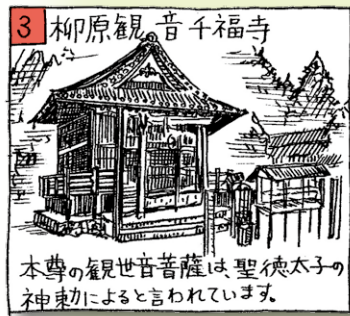 3 柳原観音千福寺
本尊の観世音菩薩は、聖徳太子の
神勅によると言われています。